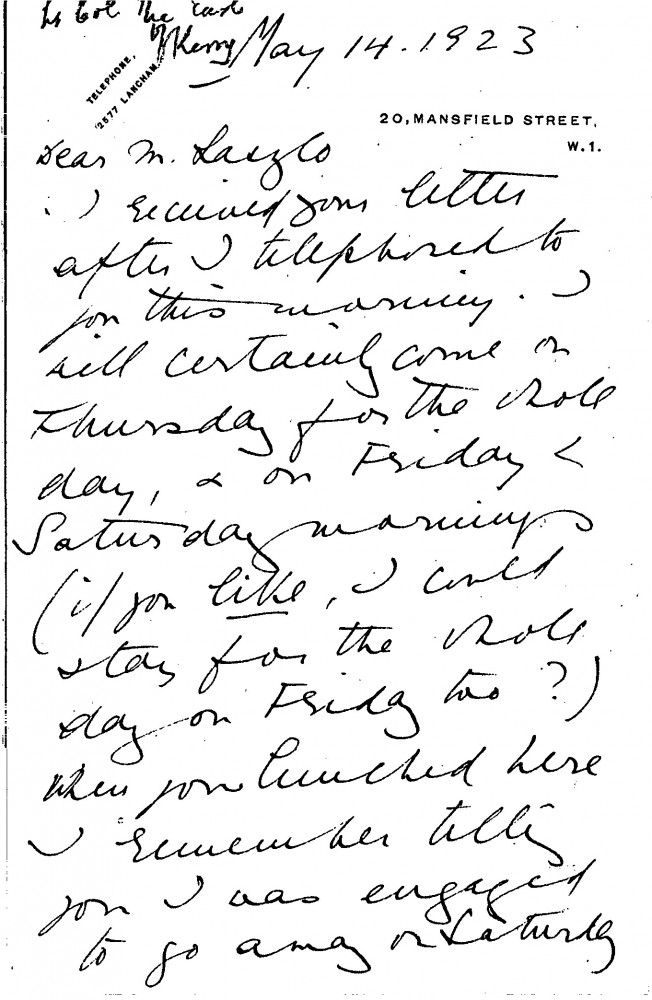 Ly Col The Earl
of Kerry May 14. 1923
TELEPHONE,
2577 LANGHAM.
20, MANSFIELD STREET,
W.1.
Dear M. Laszlo
I received your letter
after I telephoned to
you this morning. I
will certainly come on
Thursday for the whole
day, & on Friday &
Saturday mornings
(if you like, I could
stay for the whole
day on Friday too?)
When you lunched here
I remember telling
you I was engaged
to go away on Saturday